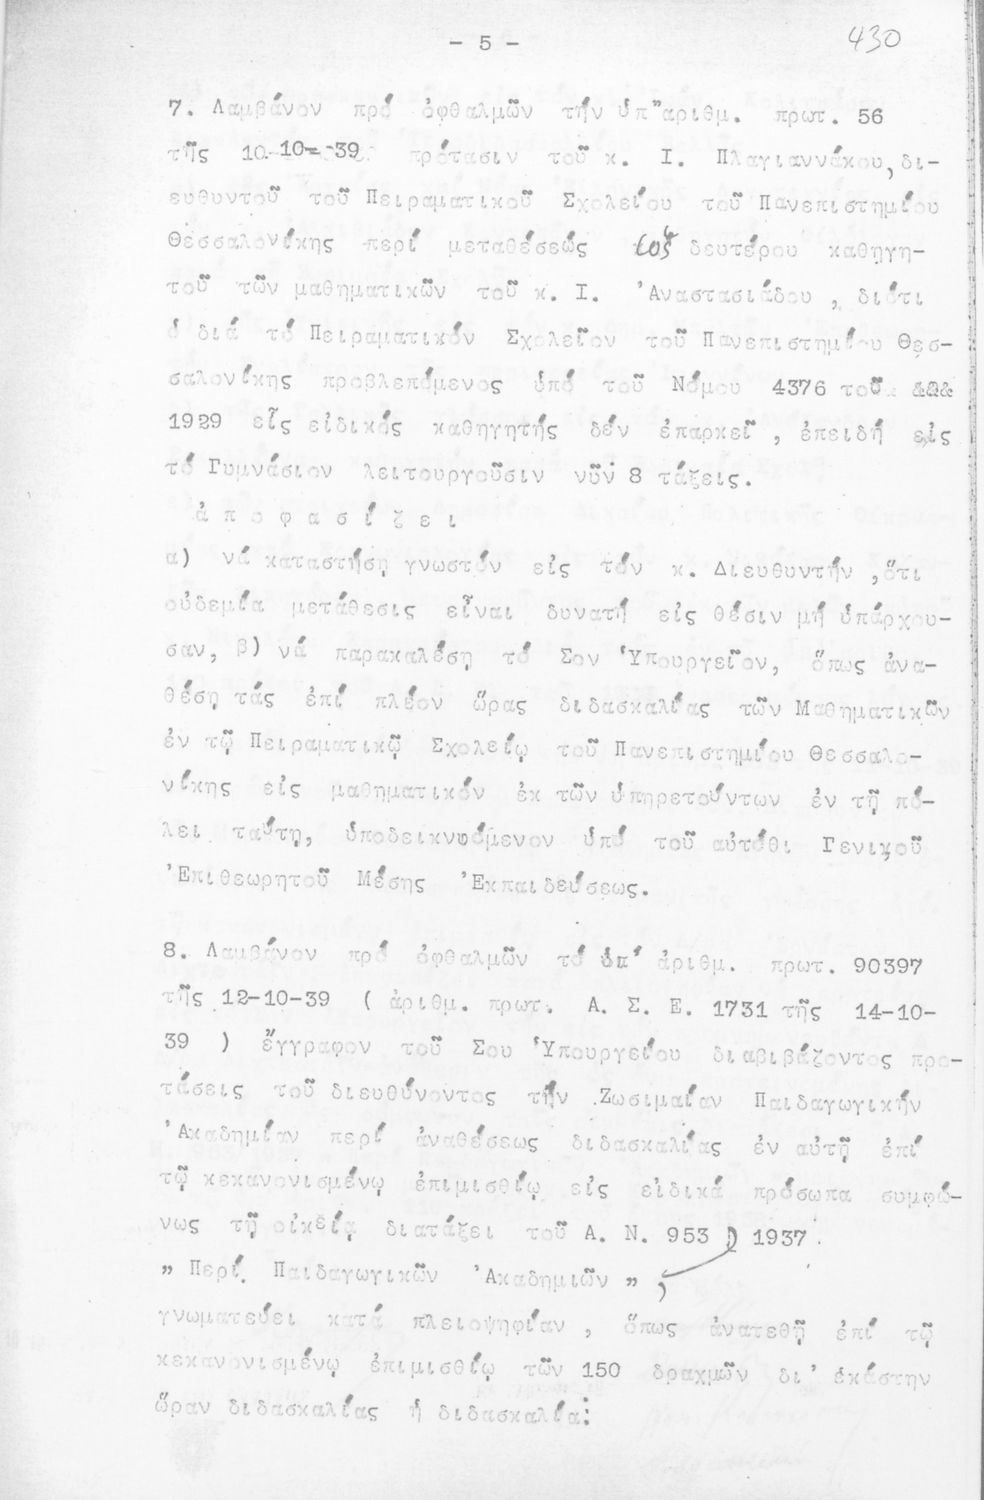 - 5 -
430
7. Λαμβάνον πρό ὀφθαλμῶν τήν ὑπ" ἀριθμ. πρωτ. 56
τῆς 10-10-39 πρότασιν τοῦ κ. Ι. Πλαγιαννάκου, δι-
ευθυντοῦ τοῦ Πειραματικοῦ Σχολείου τοῦ Πανεπιστημίου
Θεσσαλονίκης περί μεταθέσεώς δευτέρου καθηγη-
τοῦ τῶν μαθηματικῶν τοῦ κ. Ι. Ἀναστασιάδου, διότι
ὁ διά τό Πειραματικόν Σχολεῖον τοῦ Πανεπιστημίου Θεσ-
σαλονίκης προβλεπόμενος ὑπό τοῦ Νόμου 4376 τοῦ
1929 εἷς εἰδικός καθηγητής δέν ἐπαρκεῖ, ἐπειδή εἰς
τό Γυμνάσιον λειτουργοῦσιν νῦν 8 τάξεις.
ἀ π ο φ α σ ί ζ ε ι
α) νά καταστήσῃ γνωστόν εἰς τόν κ. Διευθυντήν, ὅτι
οὐδεμία μετάθεσις εἶναι δυνατή εἰς θέσιν μή ὑπάρχου-
σαν, β) νά παρακαλέσῃ τό Σον Ὑπουργεῖον, ὅπως ἀνα-
θέσῃ τάς ἐπί πλέον ὥρας διδασκαλίας τῶν Μαθηματικῶν
ἐν τῷ Πειραματικῷ Σχολείῳ τοῦ Πανεπιστημίου Θεσσαλο-
νίκης εἰς μαθηματικόν ἐκ τῶν ὑπηρετούντων ἐν τῇ πό-
λει ταύτῃ, ὑποδεικνυόμενον ὑπό τοῦ αὐτόθι Γενικοῦ
Ἐπιθεωρητοῦ Μέσης Ἐκπαιδεύσεως.
8. Λαμβάνον πρό ὀφθαλμῶν τό ὑπ' ἀριθμ. πρωτ. 90397
τῆς 12-10-39 ( ἀριθμ. πρωτ. Α. Σ. Ε. 1731 τῆς 14-10-
39 ) ἔγγραφον τοῦ Σου Ὑπουργείου διαβιβάζοντος προ-
τάσεις τοῦ διευθύνοντος τήν Ζωσιμαίαν Παιδαγωγικήν
Ἀκαδημίαν περί ἀναθέσεως διδασκαλίας ἐν αὐτῇ ἐπί
τῷ κεκανονισμένῳ ἐπιμισθίῳ εἰς εἰδικά πρόσωπα συμφώ-
νως τῇ οἰκείᾳ διατάξει τοῦ Α. Ν. 953 ) 1937
„ Περί Παιδαγωγικῶν Ἀκαδημιῶν „ ,
γνωματεύει κατά πλειοψηφίαν, ὅπως ἀνατεθῇ ἐπί τῷ
κεκανονισμένῳ ἐπιμισθίῳ τῶν 150 δραχμῶν δι' ἑκάστην
ὥραν διδασκαλίας ἡ διδασκαλία: